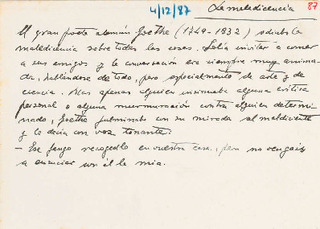 4/12/87 La maledicencia 87
El gran poeta alemán Goethe (1749-1832) odiaba la
maledicencia sobre todas las cosas. Solía invitar a comer
a sus amigos y la conversación era siempre muy anima-
da, hablándose de todo, pero especialmente de arte y de
ciencia. Mas apenas alguien insinuaba alguna crítica
personal o alguna murmuración contra alguien determi-
nado, Goethe fulminaba con su mirada al maldiciente
y le decía con voz tonante:
- Ese fango recogedlo en vuestra casa, pero no vengáis
a ensuciar con él la mía.